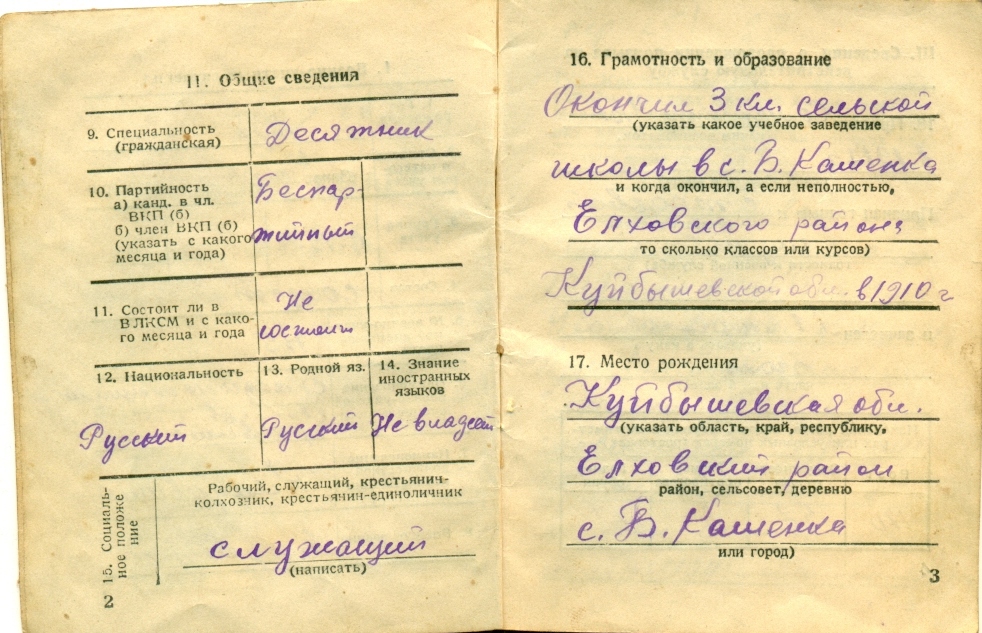 11. Общие сведения
9. Специальность
(гражданская)
Десятник
10. Партийность
а) канд. в чл.
ВКП (б)
б) член ВКП (б)
(указать с какого
месяца и года)
Беспар-
тийный
11. Состоит ли в
ВЛКСМ и с како-
го месяца и года
Не
состоит
12. Национальность
Русский
13. Родной яз.
Русский
14. Знание
иностранных
языков
Не владеет
15. Социаль-
ное положе
ние
Рабочий, служащий, крестьянин-
колхозник, крестьянин-единоличник
служащий
(написать)
2
16. Грамотность и образование
Окончил 3 кл. сельской
(указать какое учебное заведение
школы в с. Б. Каменка
и когда окончил, а если неполностью,
Елховского района
то сколько классов или курсов)
Куйбышевской обл. в 1910 г
17. Место рождения
Куйбышевская обл.
(указать область, край, республику,
Елховский район
район, сельсовет, деревню
с. Б. Каменка
или город)
3